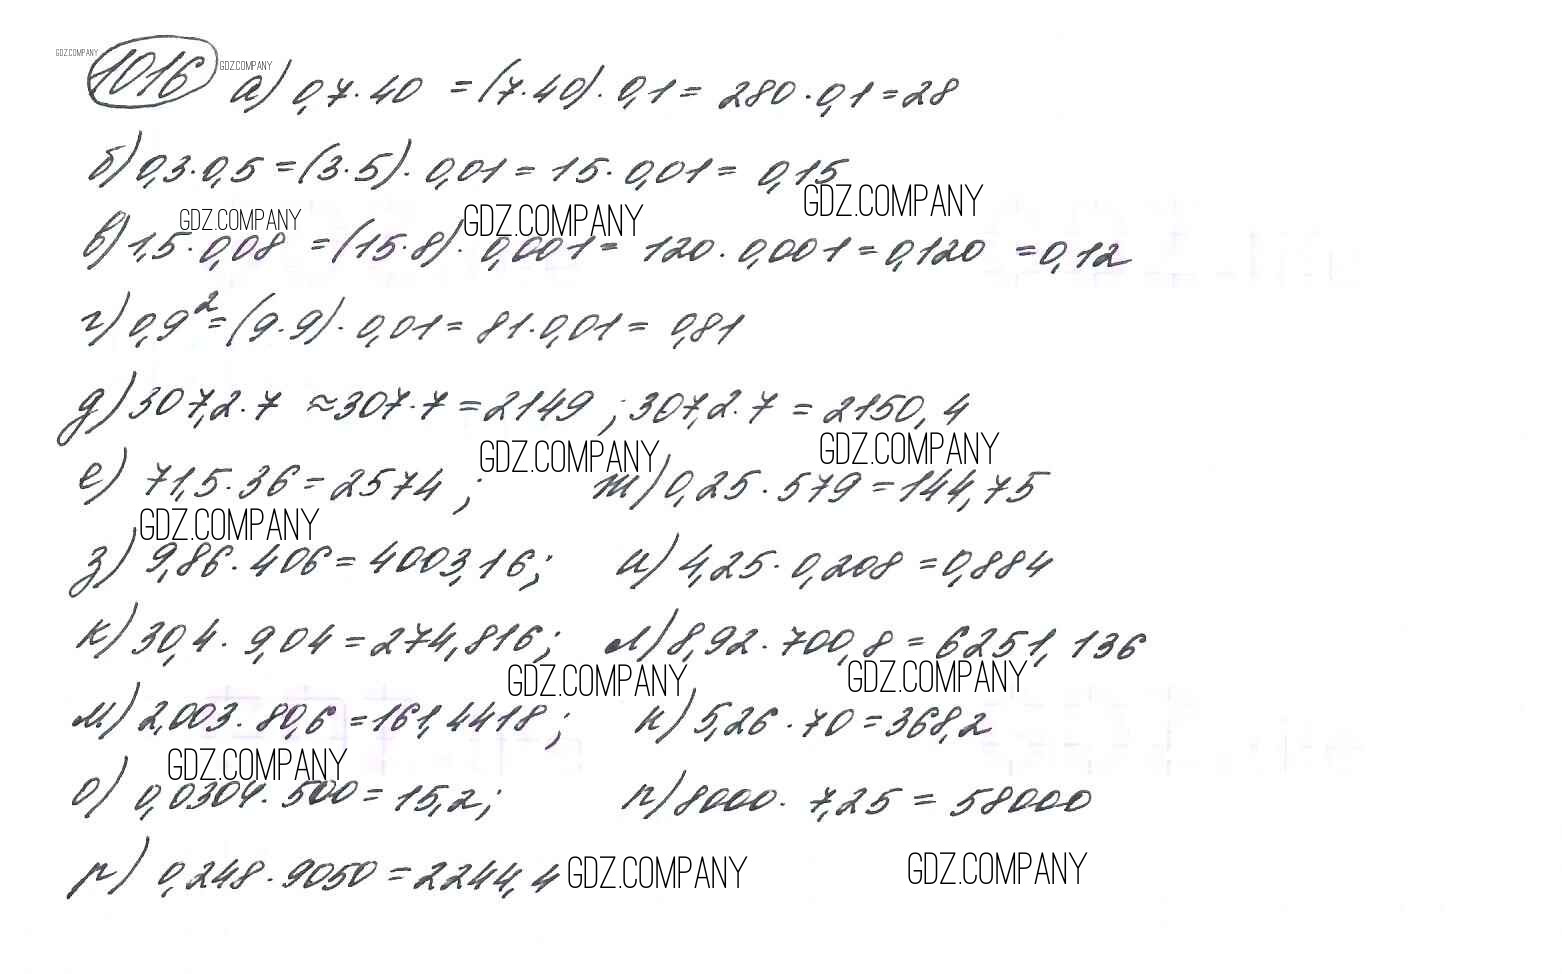 GDZ.COMPANY
1016 GDZ.COMPANY
а) 0,7·40 = (7·40)·0,1 = 280·0,1 = 28
б) 0,3·0,5 = (3·5)·0,01 = 15·0,01 = 0,15
GDZ.COMPANY GDZ.COMPANY GDZ.COMPANY
в) 1,5·0,08 = (15·8)·0,001 = 120·0,001 = 0,120 = 0,12
г) 0,9² = (9·9)·0,01 = 81·0,01 = 0,81
д) 307,2·7 ≈ 307·7 = 2149; 307,2·7 = 2150,4
GDZ.COMPANY GDZ.COMPANY
е) 71,5·36 = 2574; ж) 0,25·579 = 144,75
GDZ.COMPANY
з) 9,86·406 = 4003,16; и) 4,25·0,208 = 0,884
к) 30,4·9,04 = 274,816; л) 8,92·700,8 = 6251,136
GDZ.COMPANY GDZ.COMPANY
м) 2,003·80,6 = 161,4418; н) 5,26·70 = 368,2
GDZ.COMPANY
о) 0,0304·500 = 15,2; п) 8000·7,25 = 58000
р) 0,248·9050 = 2244,4 GDZ.COMPANY GDZ.COMPANY